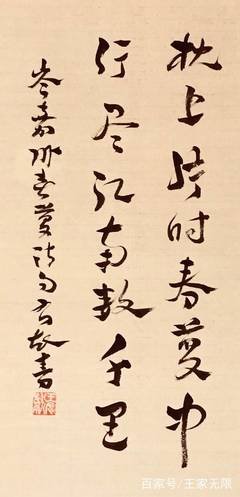 枕上片时春夢中
行尽江南数千里
岑嘉州春夢诗句书
百家号/王家无限